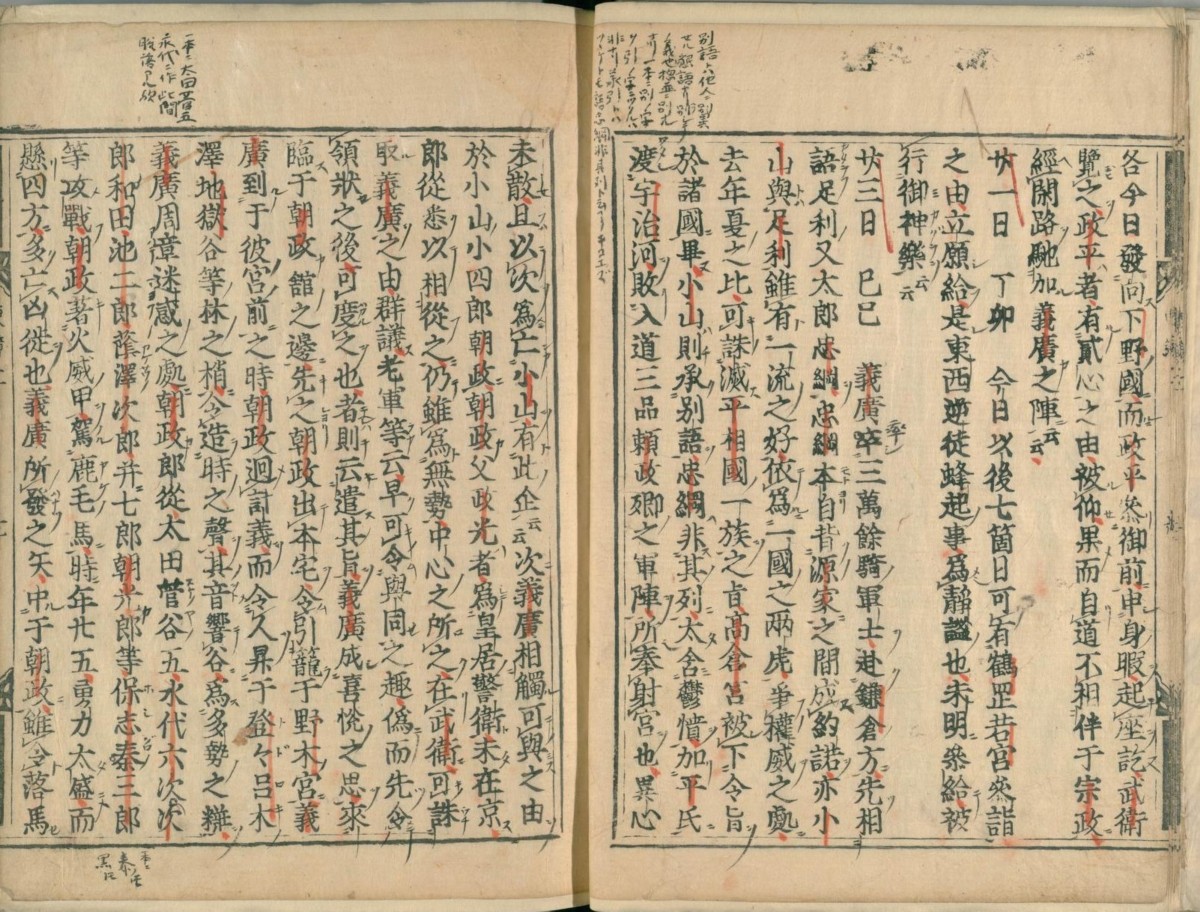 各今日發向下野國而政平參御前申身暇起座訖武衛
覽之政平者有貳心之由被仰果而自道不相伴于宗政
經閑路馳加義廣之陣云云
廿一日 丁卯 今日以後七箇日可有鶴罡若宮參詣
之由立願給是東西逆徒蜂起事為靜謐也未明參給被
行御神樂云云
廿三日 己巳 義廣率三萬餘騎軍士赴鎌倉方先相
語足利又太郎忠綱忠綱本自背源家之間成約諾亦小
山與足利雖有一流之好依為一國之兩虎爭權威之處
去年夏之比可誅滅平相國一族之旨高倉宮被下令旨
於諸國畢小山則承別語忠綱非其列太含鬱憤加平氏
渡宇治河敗入道三品賴政卿之軍陣所奉射宮也異心
未散且以次為亡小山有此企云云次義廣相觸可與之由
於小山小四郎朝政朝政父政光者為皇居警衛未在京
郎從悉以相從之仍雖為無勢中心之所之在武衛可誅
取義廣之由群議老軍等云早可令與同之趣偽而先令
領狀之後可度之也者則云遣其旨義廣成喜悅之思來
臨于朝政舘之邊先之朝政出本宅令引籠于野木宮義
廣到于彼宮前之時朝政迴討義而令人昇于登々呂木
澤地獄谷等林之梢令造時之聲其音響谷為多勢之粧
義廣周章迷惑之處朝政郎從太田菅谷五水代六次次
郎和田池二郎蔭澤次郎并七郎朝光郎等保志秦三郎
等攻戰朝政著火威甲駕鹿毛馬時年廿五勇力太盛而
懸四方多亡凶徒也義廣所發之矢中于朝政雖令落馬